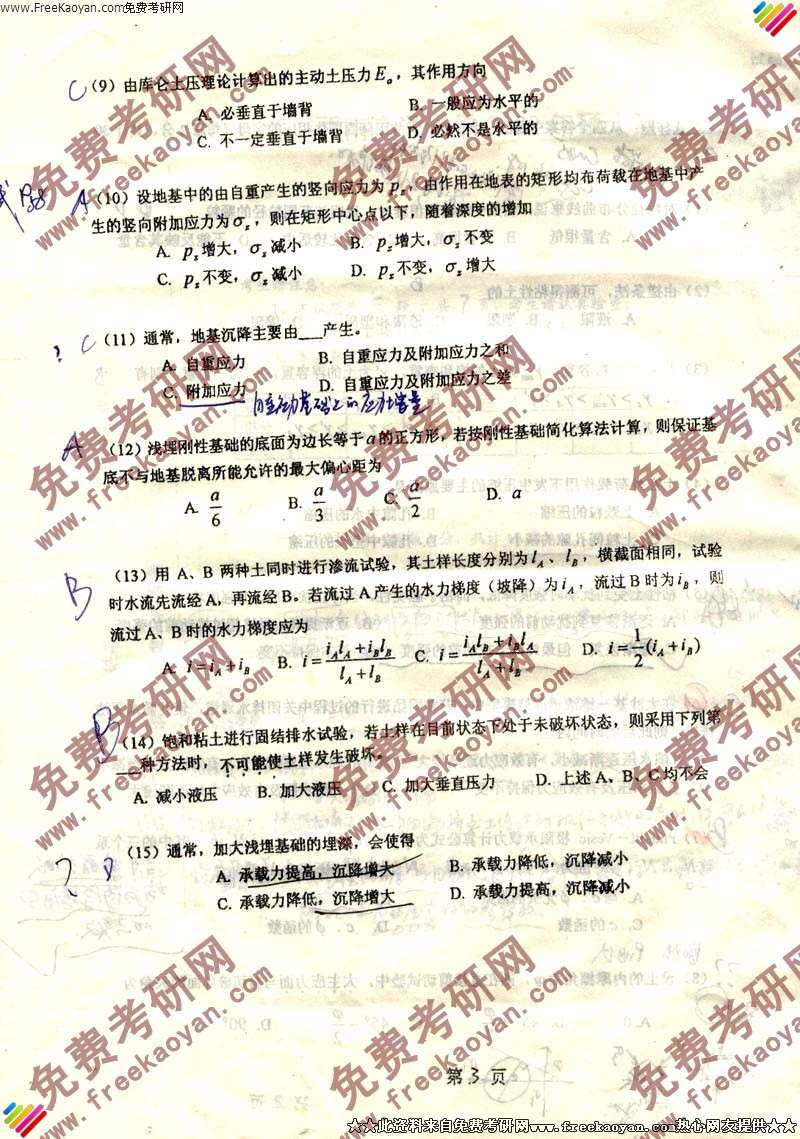 www.FreeKaoyan.com免费考研网
C (9) 由库仑土压理论计算出的主动土压力Eₐ，其作用方向
A. 必垂直于墙背 B. 一般应为水平的
C. 不一定垂直于墙背 D. 必然不是水平的
A (10) 设地基中的由自重产生的竖向应力为 p_z，由作用在地表的矩形均布荷载在地基中产
生的竖向附加应力为σ_z，则在矩形中心点以下，随着深度的增加
A. p_z增大，σ_z减小 B. p_z增大，σ_z不变
C. p_z不变，σ_z减小 D. p_z不变，σ_z增大
? C (11) 通常，地基沉降主要由___产生。
A. 自重应力 B. 自重应力及附加应力之和
C. 附加应力 D. 自重应力及附加应力之差
A (12) 浅埋刚性基础的底面为边长等于a的正方形，若按刚性基础简化算法计算，则保证基
底不与地基脱离所能允许的最大偏心距为
A. a/6 B. a/3 C. a/2 D. a
B (13) 用 A、B 两种土同时进行渗流试验，其土样长度分别为l_A、l_B，横截面相同，试验
时水流先流经 A，再流经 B。若流过 A 产生的水力梯度（坡降）为i_A，流过 B 时为i_B，则
流过 A、B 时的水力梯度应为
A. i=i_A+i_B B. i=(i_A l_A+i_B l_B)/(l_A+l_B) C. i=(i_A l_B+i_B l_A)/(l_A+l_B) D. i=1/2(i_A+i_B)
B (14) 饱和粘土进行固结排水试验，若土样在目前状态下处于未破坏状态，则采用下列第
___种方法时，不可能使土样发生破坏。
A. 减小液压 B. 加大液压 C. 加大垂直压力 D. 上述 A、B、C 均不会
? D (15) 通常，加大浅埋基础的埋深，会使得
A. 承载力提高，沉降增大 B. 承载力降低，沉降减小
C. 承载力降低，沉降增大 D. 承载力提高，沉降减小
第 3 页
免费考研网
www.freekaoyan.com
★☆此资料来自免费考研网www.freekaoyan.com热心网友提供★☆★